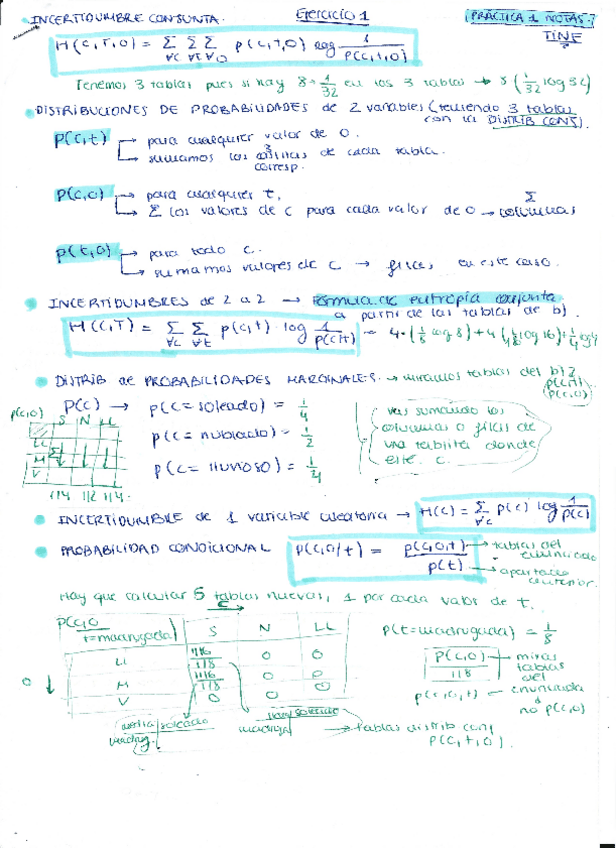 INCERTIDUMBRE CONJUNTA. Ejercicio 1 PRÁCTICA 1 NOTAS:
TINF
H(C,T,O) = Σ∀C Σ∀T Σ∀O p(c,t,o) log 1/p(c,t,o)
Tenemos 3 tablas pues si hay 8 → 1/32 en las 3 tablas → 8 (1/32 log 32)
DISTRIBUCIONES DE PROBABILIDADES de 2 variables (teniendo 3 tablas
con la DISTRIB CONJ).
P(c,t) → para cualquier valor de o.
→ sumamos las 3 filas de cada tabla.
corresp.
P(c,o) → para cualquier t.
→ Σ los valores de c para cada valor de o → Σ columnas
P(t,o) → para todo c.
→ sumamos valores de c → filas, en este caso.
INCERTIDUMBRES de 2 a 2 → Fórmula de entropía conjunta
a partir de las tablas de b).
H(C,T) = Σ∀C Σ∀T p(c,t) · log 1/p(c,t) = 4·(1/8 log 8) + 4(1/16 log 16) + 1/4 log 4
DISTRIB de PROBABILIDADES MARGINALES. → miramos tablas del b)?
p(c,t)
p(c,o)
P(C) → p(c = soleado) = 1/4
p(c = nublado) = 1/2
p(c = lluvioso) = 1/4
vas sumando las
columnas o filas de
una tablita donde
esté c.
p(c,o) S N LL
LL
M
V
1/4 1/2 1/4
INCERTIDUMBRE de 1 variable aleatoria → H(C) = Σ∀C p(c) log 1/p(c)
PROBABILIDAD CONDICIONAL P(c,o/t) = p(c,o,t)/p(t) → tablas del enunciado
→ apartado anterior.
Hay que calcular 5 tablas nuevas, 1 por cada valor de t.
C
P(c,o/t=madrugada) S N LL
O ↓ LL 1/16 / 1/8 0 0
M 1/16 / 1/8 0 0
V 0 0 0
p(t=madrugada) = 1/8
P(c,o)/1/8 → miras tablas del enunciado
p(c,o,t) no p(c,o)
soleado
madrug.
soleado
→ tablas distrib conj
P(c,t,o).